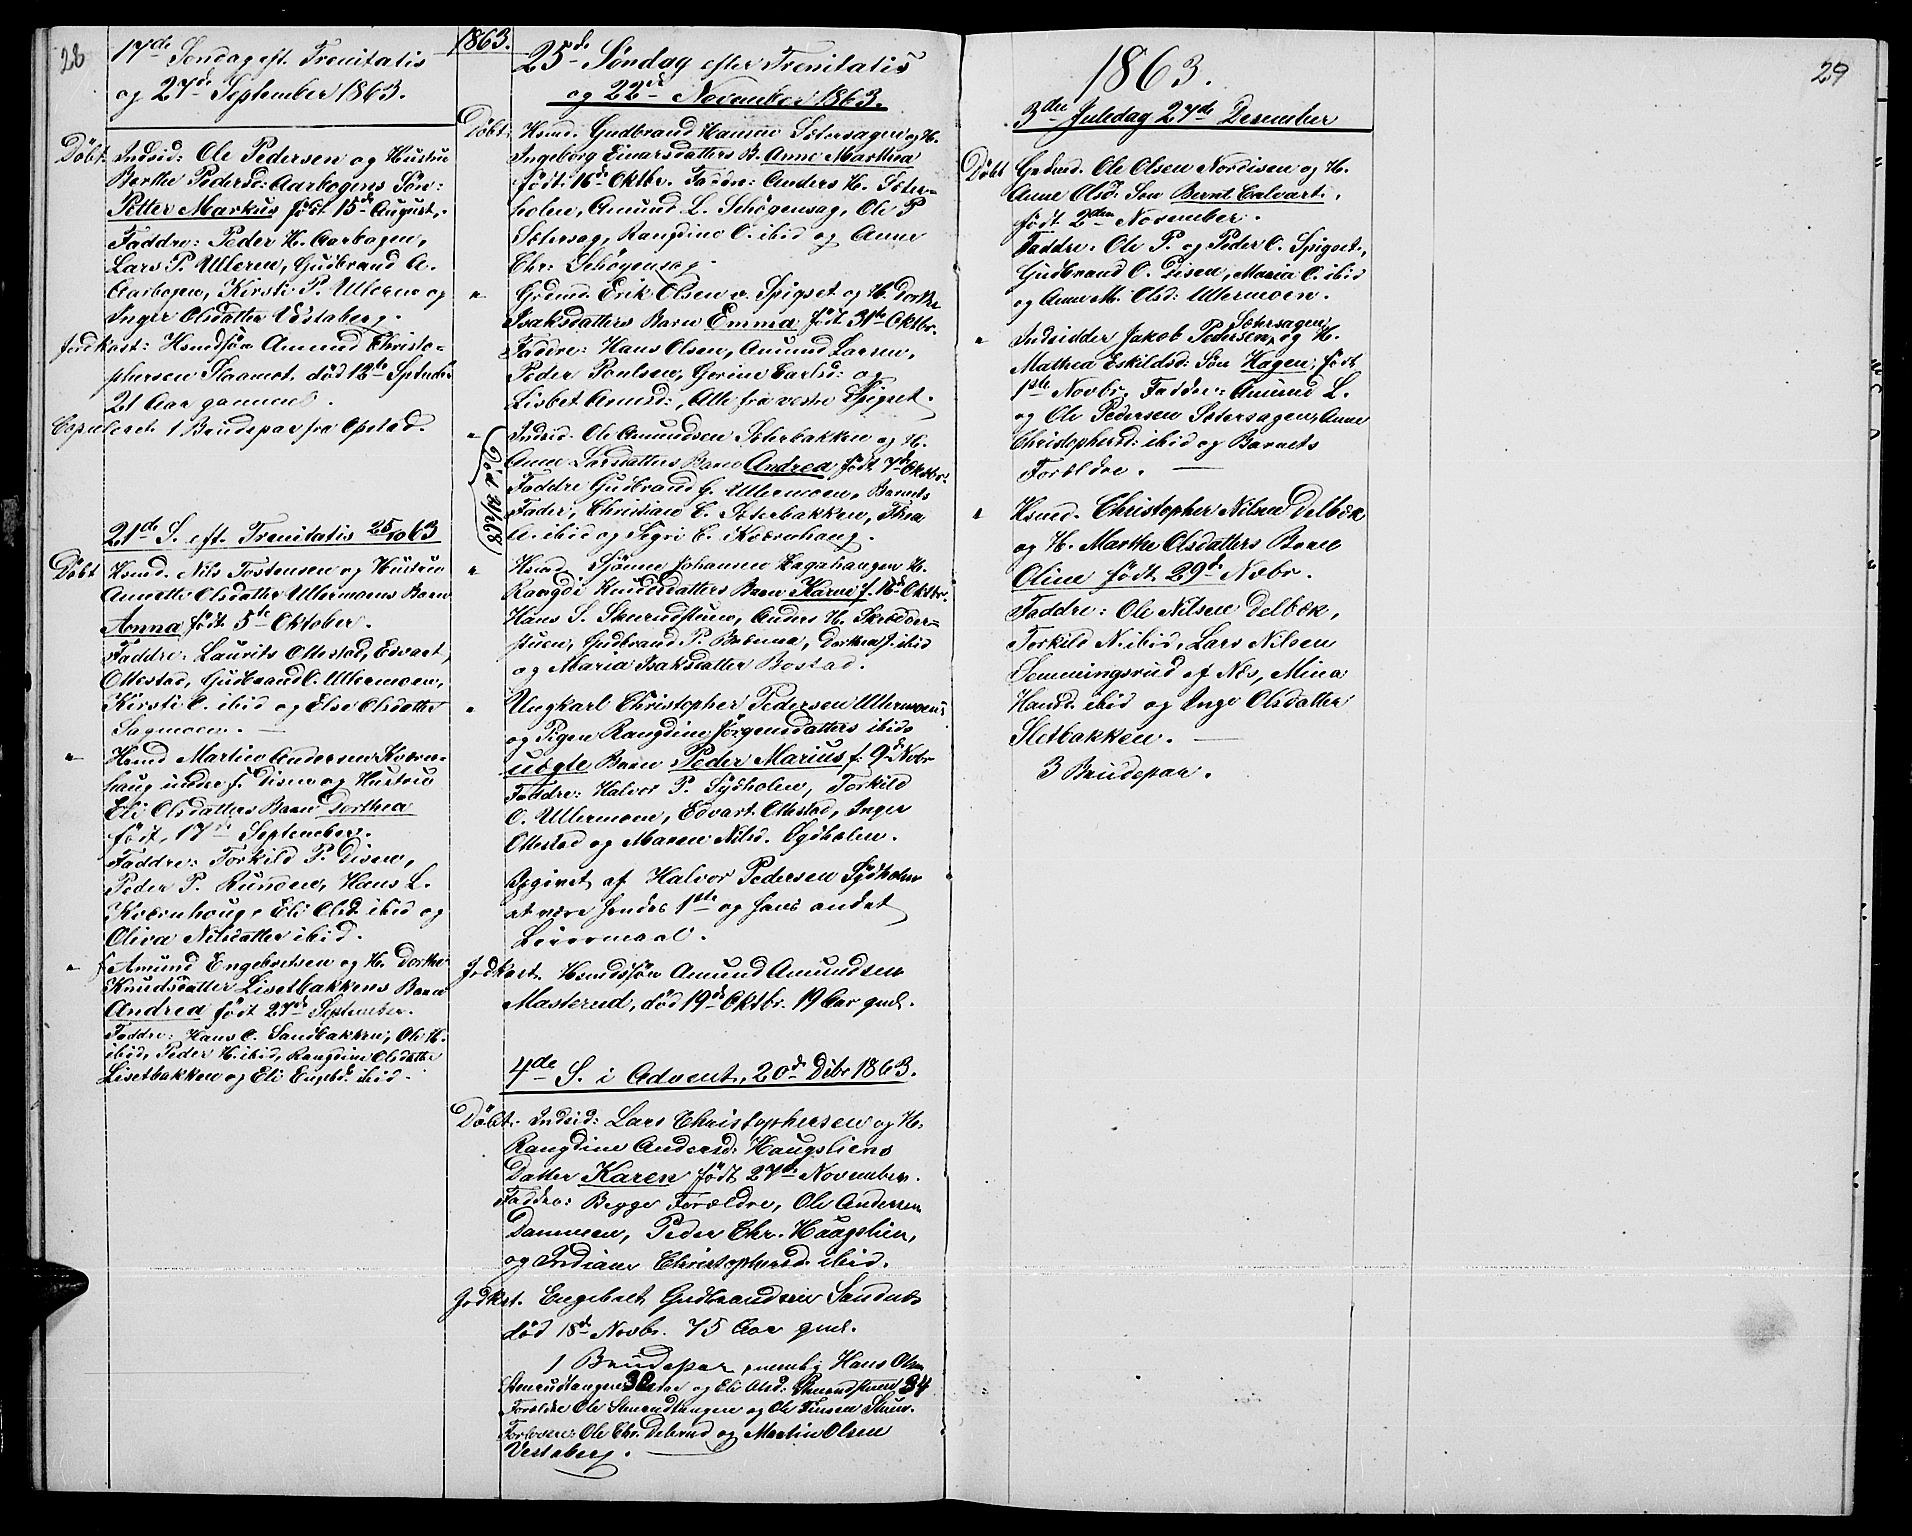 28
17de Søndag eft. Trenitatis
og 27de September 1863.
Døbt. Indsid: Ole Pedersen og Hustru
Berthe Pedersd: Aarbogens Søn:
Petter Markus født 15de August.
Faddre: Peder H. Aarbogen,
Lars P. Ulleren, Gudbrand A.
Aarbogen, Kirsti P. Ulleren og
Inger Olsdatter Udstaberg.
Jordkast: Hsmdsøn Amund Christo-
phersen Flaamot. død 12te Sptember
21 Aar gammel.
Copuleret: 1 Brudepar fra Opstad.
21de S. eft. Trenitatis 25/10 63
Døbt Hsmd. Nils Tostensen og Hustru
Annette Olsdatter Ullermoens Barn
Anna født 5te Oktober.
Faddre: Laurits Ottestad, Edvart
Ottestad, Gudbrand O. Ullermoen,
Kirsti O. ibid og Else Olsdatter
Sagmoen.
" Hsmd Martin Andersen Kværn-
haug under f. Disen og Hustru
Eli Olsdatters Barn Dorthea
født 17de September.
Faddre: Torkild P. Disen,
Peder P. Runden, Hans L.
Kværnhoug, Eli Olsd. ibid og
Oliva Nilsdatter ibid.
" Amund Engebretsen og H. Dorthe
Knudsdatter Lisetbakkens Barn
Andrea født 27de September.
Faddre: Hans O. Sandbakken, Ole H.
ibid, Peder H. ibid, Rangdine Olsdatter
Lisetbakken og Eli Engebd. ibid.
1863.
25de Søndag efter Trenitatis
og 22de November 1863.
Døbt: Hsmd. Gudbrand Hansen Sætersagen og H.
Ingeborg Einarsdatters B. Anne Marthea
født 16de Oktbr. Faddre: Anders H. Sæter-
holen, Amund L. Schøgensag, Ole P
Sætersag, Rangdine O. ibid og Anne
Chr: Schøgensag.
" Grdmd. Erik Olsen v. Spigset og H. Dorthe
Isaksdatters Barn Emma født 31te Oktbr.
Faddre: Hans Olsen, Amund Larsen,
Peder Poulsen, Gorine Carlsd: og
Lisbet Arnesd:, Alle fra vestre Spigset.
" Indsid. Ole Amundsen Sæterbakken og H.
Anne Larsdatters Barn Andrea født 7de Oktbr.
Faddre Gudbrand G. Ullermoen, Barnets
Fader, Christian C. Sæterbakken, Thea
A. ibid og Sigri E. Kværnhaug.
" Hsmd. Sjønne Johannes Hagahaugen H.
Rangdi Knudsdatters Barn Karen f. 16de Oktbr.
Hans S. Skerudstuen, Anders H. Skrædder-
stuen, Gudbrand P. Bræenna, Dorthea J. ibid
og Maria Isaksdatter Bostad.
" Ungkarl Christopher Pedersen Ullermoens
og Pigen Rangdine Jørgensdatters ibids
uægte Barn Peder Marius f. 9de Novbr
Faddre: Halvor P. Sydholen, Torkild
O. Ullermoen, Edvart Ottestad, Inger
Ottestad og Maren Nilsd. Sydholen.
Opgivet af Halvor Pedersen Sydholen
at være hendes 1ste og hans andet
Leiermaal.
Jodkast. Hsmdssøn Amund Amundsen
Masterud, død 19de Oktbr. 19 Aar gml.
4de S. i Advent, 20de Dcbr 1863.
Døbt. Indsid: Lars Christophersen og H.
Rangdine Andersd. Haugsliens
Datter Karen født 27de November.
Faddre: Begge Forældre, Ole Andersen
Dammen, Peder Chr. Haugslien,
og Indiane Christophersd. ibid.
Jodkst. Engebret Gudbrandsen Sandnes
død 18de Novbr. 75 Aar gml.
1 Brudepar, nemlig Hans Olsen
Skerudhaugen 30 Aar og Eli Olsd: Skerudstuen 34
Forældre Ole Skerudhaugen og Ole Finsen Stuen.
Forlovere: Ole Chr. Dølerud og Martin Olsen
Vestaberg.
1863.
29
3die Juledag 27de Desember
Døbt Grdmd. Ole Olsen Nordisen og H.
Anne Olsd: Søn Bernt Edvart.
født 2den November.
Faddre. Ole P. og Peder O. Spigset,
Gudbrand O. Disen, Maria O. ibid
og Anne M. Olsd: Ullermoen.
" Indsidder Jakob Pedersen Sætersagen og H.
Mathea Eskildsd: Søn Hagen, født
1ste Novbr. Faddre: Amund L.
og Ole Pedersen Sætersagen, Anne
Christophersd: ibid og Barnets
Forældre.
" Hsmd. Christopher Nilsen Delbæk
og H. Marthe Olsdatters Barn
Oline født 29de Novbr.
Faddre: Ole Nilsen Delbæk,
Torkild N. ibid, Lars Nilsen
Semmingsrud af Næs, Mina
Hansd: ibid og Inge Olsdatter
Sletbakken.
3 Brudepar.